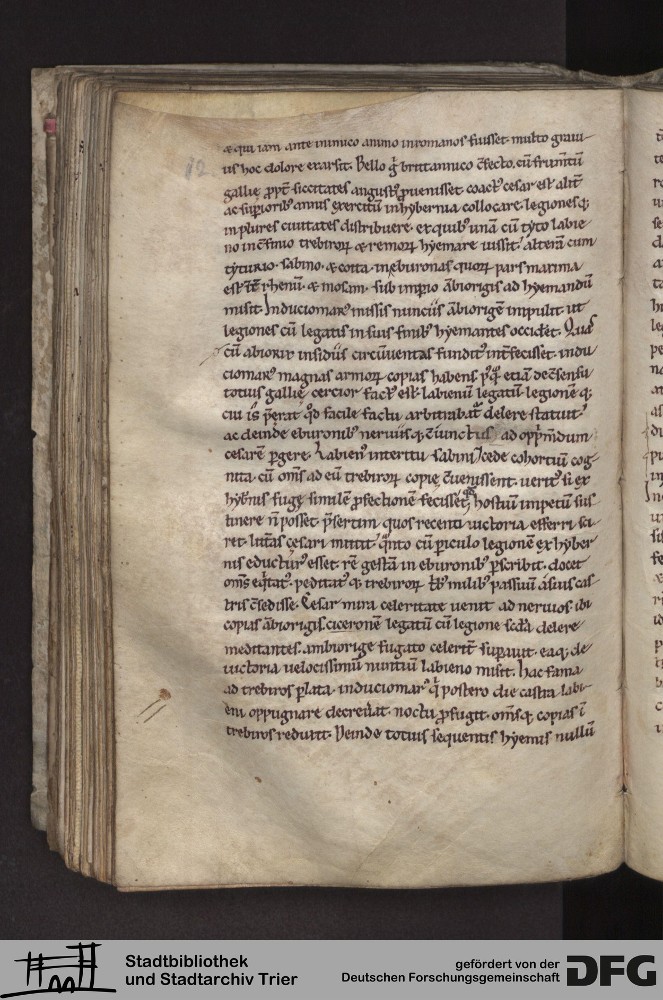 & qui iam ante inimico animo inromanos fuisset. multo graui
us hoc dolore exarsit. Bello gͥ brittannico cfecto. cū frumtū
gallię ꝓpt siccitates angustꝰ ꝓuenisset coactꝰ cesar est alit
ac supioribꝰ annis exercitū inhybernia collocare. legionesq;
inplures ciuitates distribuere. exquibꝰ unā cū tyto labie
no incfinio trebiroꝝ & remoꝝ hyemare iussit. alterā cum
tyturio. sabino. & cotta. ineburonas quoꝝ pars maxima
est. īt rhenū. & mosam. sub impio ābiorigis ad hyemandū
misit. Induciomarꝰ missis nunciis ābiorigē impulit. ut
legiones cū legatis insuis finibꝰ hyemantes occidet. Quas
cū abiorix insidiis circūuentas funditꝰ intfecisset. indu
ciomarꝰ magnas armoꝝ copias habens etiā decsensu
totius gallię cercior factꝰ est. labienū legatū. legionē q;
cui is p̄erat. qd facile factu arbitrabat delere statuit.
ac deinde eburonibꝰ neruiisq; ciunctus ad oppmdum
cesarē pgere. Labienꝰ interitu sabini cede cohortiū cog
nita. cū oms ad eū trebiroꝝ copię cuenissent. ueritꝰ si ex
hybnis fugę similē ꝓfectionē fecisset, hostiū impetū sus
tinere n posset. p̄sertim quos recenti uictoria efferri sci
ret. litas cęsari mittit. qnto cū piculo legionē ex hyber
nis educturꝰ esset. rē gestā in eburonibꝰ pscribit. docet
oms eqtatꝰ. peditatꝰ q; trebiroꝝ tbꝰ milibꝰ passuū a suis cas
tris csedisse. Cesar mira celeritate uenit ad neruios. ibi
copias ābiorigis. ciceronē legatū cū legione scda delere
meditantes. ambiorige fugato celerit supauit. eaq; de
uictoria uelocissimū nuntiū labieno misit. hac fama
ad trebiros plata. induciomarꝰ q postero die castra labi
eni oppugnare decreuat. noctu ꝓfugit. omsq; copias ī
trebiros reduxit. Deinde totius sequentis hyemis nullū
Stadtbibliothek
und Stadtarchiv Trier
gefördert von der
Deutschen Forschungsgemeinschaft
DFG